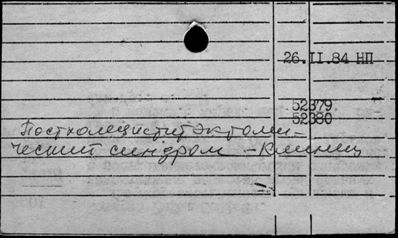 26.II.84 НП
52379
52380
Постхолециститэктоми-
ческий синдром – Клиниц